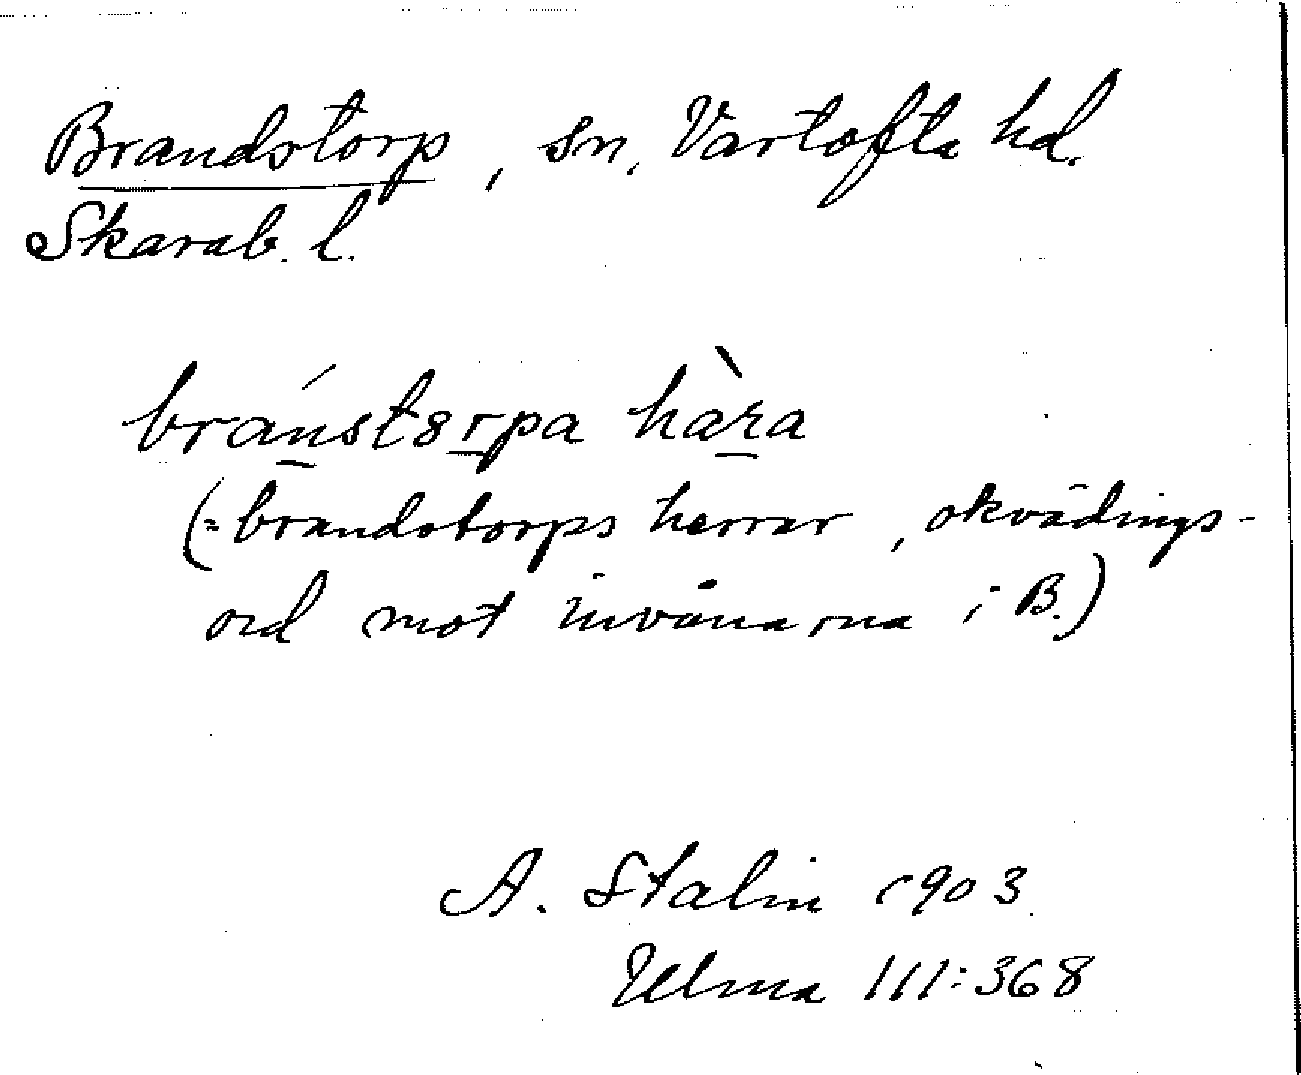 Brandstorp, sn, Vartofta hd.
Skarab. l.
bránst8rpa hàra
(= brandstorps herrar, okvädings-
ord mot invånarna i B.)
A. Stalin 1903.
Ulma 111:368